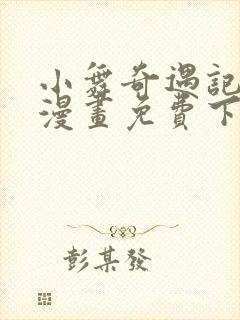 小舞奇遇記
漫畫免費下
彭某發